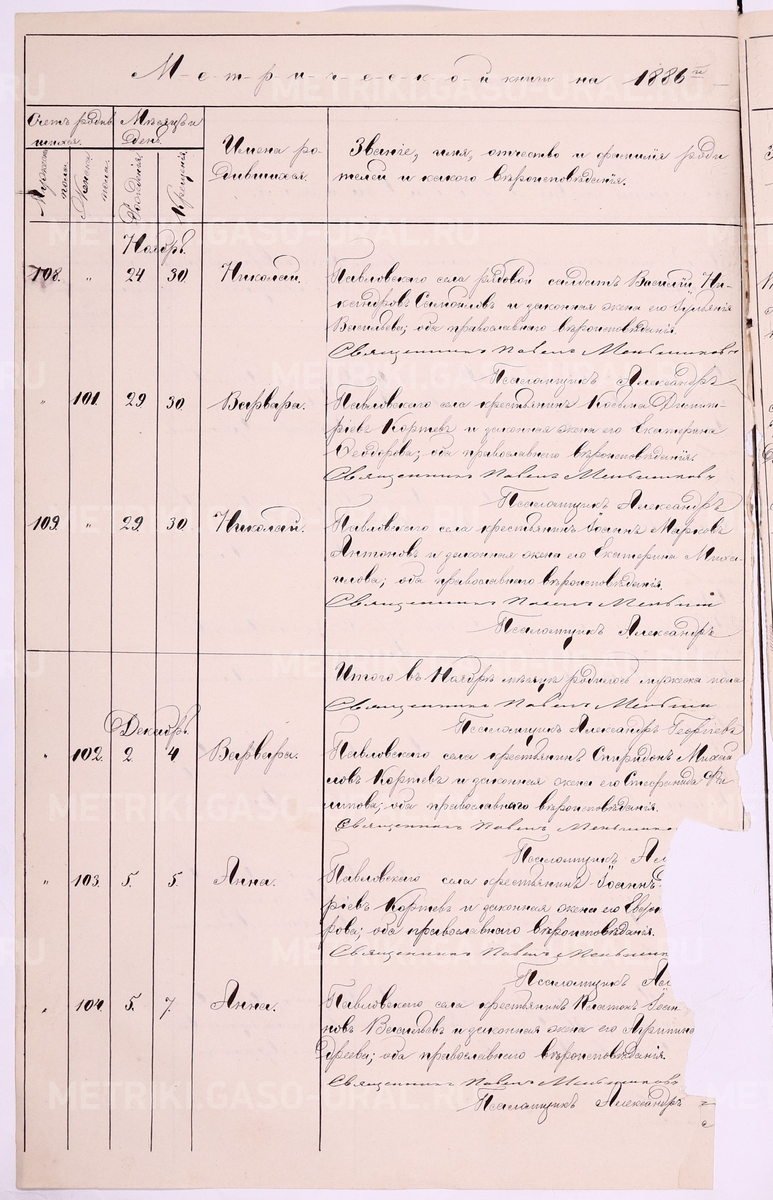 Метрической книги на 1886й
Счетъ родив
шихся.
Мѣсяцъ и
день.
Мужеска
пола.
Женска
пола.
Рожденія.
Крещенія.
Имена ро-
дившихся.
Званіе, имя, отчество и фамилія роди
телей и какого вѣроисповѣданія.
Ноябрь.
108. " 24 30 Николай.
Павловскаго села рядовой солдатъ Василій Ни-
кандровъ и законная жена его
Васильева; оба православнаго вѣроисповѣданія.
Священникъ Павелъ Меньшиковъ
Псаломщикъ Александръ
" 101 29 30 Варвара.
Павловскаго села крестьянинъ Косьма Димит-
ріевъ Кортевъ и законная жена его Екатерина
Ѳеодорова; оба православнаго вѣроисповѣданія.
Священникъ Павелъ Меньшиковъ
Псаломщикъ Александръ
109. " 29 30 Николай.
Павловскаго села крестьянинъ Іоаннъ Марковъ
Антоновъ и законная жена его Екатерина Миха
илова; оба православнаго вѣроисповѣданія.
Священникъ Павелъ Меньши
Псаломщикъ Александръ
Итого въ Ноябрѣ мѣсяцѣ родилось мужеска пола
Священникъ Павелъ Меньши
Псаломщикъ Александръ Георгіевъ
Декабрь.
" 102. 2 4 Варвара.
Павловскаго села крестьянинъ Спиридонъ Михаи
ловъ Кортевъ и законная жена его Стефанида Фи
липова; оба православнаго вѣроисповѣданія.
Священникъ Павелъ Меньшиков
Псаломщикъ Ал
" 103. 5. 5. Анна.
Павловскаго села крестьянинъ Іоаннъ
ріевъ Кортевъ и законная жена его
рова; оба православнаго вѣроисповѣданія.
Священникъ Павелъ Меньшик
Псаломщикъ Ал
" 104. 5. 7. Анна.
Павловскаго села крестьянинъ Платонъ Іоан
новъ Васильевъ и законная жена его Агрипина
дреева; оба православнаго вѣроисповѣданія.
Священникъ Павелъ Меньшиковъ
Псаломщикъ Александръ
METRIKI.GASO-URAL.RU